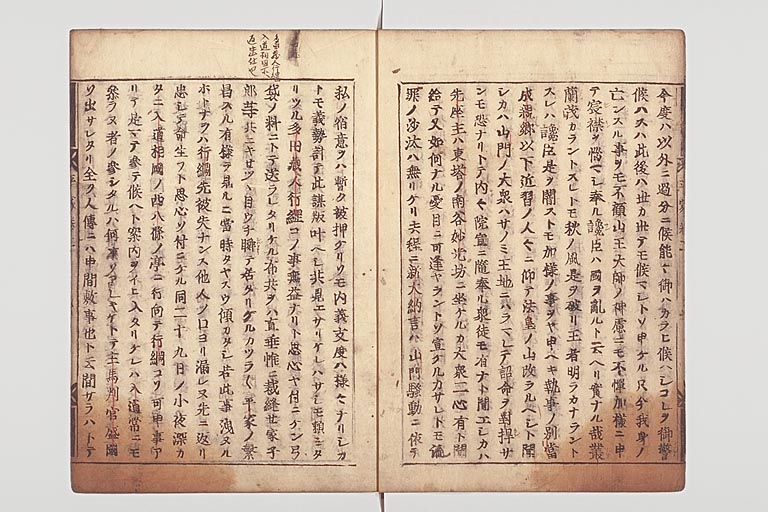 今度ハ以外ニ過分ニ候能々御ハカラヒ候ヘシコレヲ御警
候ハスハ此後ハ世カ世テモ候マシトソ申ケル只今我身ノ
亡ンスル事ヲモ不顧山王大師ノ神慮ニモ不憚加様ニ申
テ宸襟ヲ悩マシ奉ル讒臣ハ國ヲ亂ルト云ヘリ實ナル哉叢
蘭茂カラントスレトモ秋ノ風是ヲ破リ王者明ラカナラント
スレハ讒臣是ヲ闇ストモ加様ノ事ヲヤ申ヘキ執事ノ別當
成親卿以下近習ノ人々ニ仰テ法皇ノ山攻ラルヘシト聞
シカハ山門ノ大衆ハサノミ王地ニハラマレテ詔命ヲ對捍せ
ンモ恐ナリトテ内々院宣ニ隨奉ル衆徒モ有ナト聞エシカハ
先座主ハ東塔ノ南谷妙光坊ニ坐ケルカ大衆二心有ト聞
給テ又如何ナル憂目ニ可逢ヤラントソ宣ケルカサレトモ流
罪ノ沙汰ハ無リケリ去程ニ新大納言ハ山門騒動ニ依テ
私ノ宿意ヲハ暫ク被押ケリソモ内義支度ハ様々ナリシカ
トモ義勢計テ此謀叛叶ヘシ共見エサリケレハサシモ頼ミタ
リツル多田蔵人行綱コノ事無益ナリト思心ヤ付ニケン弓
袋ノ料ニトテ送ラレタリケル布共ヲハ直垂帷ニ裁縫せ家子
郎等共ニキせツヽ目ウチ瞬テ居タリケルカツラ〳〵平家ノ繁
昌スル有様ヲ見ルニ當時タヤスウ傾カタシ若此事洩ヌル
ホトナラハ行綱先被失ナンス他人ノ口ヨリ漏レヌ先ニ返リ
忠シテ命生ウト思心ソ付ニケル同二十九日ノ小夜深カ
タニ入道相國ノ西八條ノ亭ニ行向テ行綱コソ可申事ア
リテ是マテ参テ候ヘト案内ヲイヒ入タリケレハ入道常ニモ
参ラヌ者ノ参シタルハ何事ソアレキケトテ主馬判官盛國
ソ出サレタリ全ク人傳ニハ申間敷事也ト云間サラハトテ